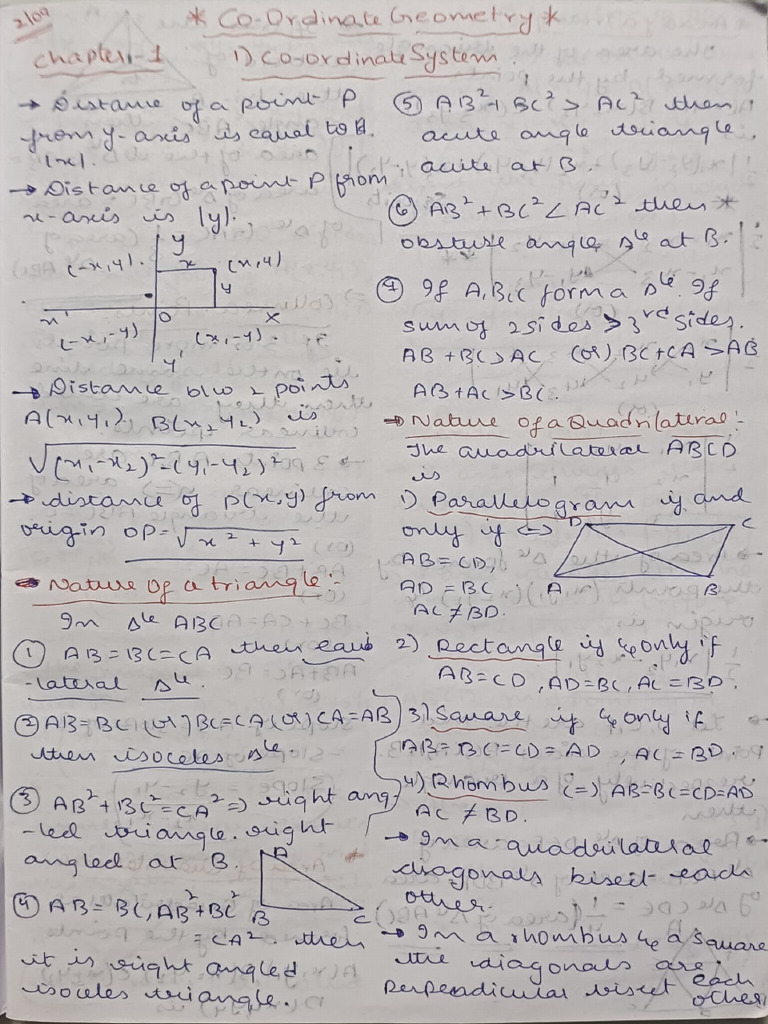 2/09
* Co-Ordinate Geometry *
Chapter-1 1) Co-ordinate System.
→ Distance of a point P
from y-axis is equal to
|x|.
→ Distance of a point P from
x-axis is |y|.
y
(-x,y) x (x,y)
y
x' O x
(-x,-y) (x,-y).
y'
→ Distance b/w 2 points
A(x,y,). B(x₂ y₂) is
√(x₁-x₂)²-(y₁-y₂)²
→ distance of P(x,y) from
origin OP=√x² + y²
→ Nature of a triangle:-
In Δle ABC
① AB=BC=CA then equi
-lateral Δle.
② AB=BC (or) BC=CA (or) CA=AB
then isoceles Δle.
③ AB²+BC²=CA² => right ang
-led triangle. right
angled at B.
A
B C
④ AB=BC, AB²+BC²
=CA². then
it is right angled
isoceles triangle.
⑤ AB²+BC² > AC² then
acute angle triangle.
acute at B.
⑥ AB²+BC² < AC² then *
obstuse angle Δle at B.
⑦ If A,B,C form a Δle. If
sum of 2 sides > 3rd sides.
AB+BC>AC (or) BC+CA>AB
AB+AC>BC.
→ Nature of a Quadrilateral:-
The quadrilateral ABCD
is
1) Parallelogram if and
only if <=>
D C
AB=CD,
AD=BC A B
AC≠BD.
2) Rectangle if & only if
AB=CD, AD=BC, AC=BD.
3) Square if & only if
AB=BC=CD=AD, AC=BD.
4) Rhombus <=> AB=BC=CD=AD
AC≠BD.
→ In a quadrilateral
diagonals bisect each
other.
→ In a rhombus & a square
the diagonals are
perpendicular bisect each
other